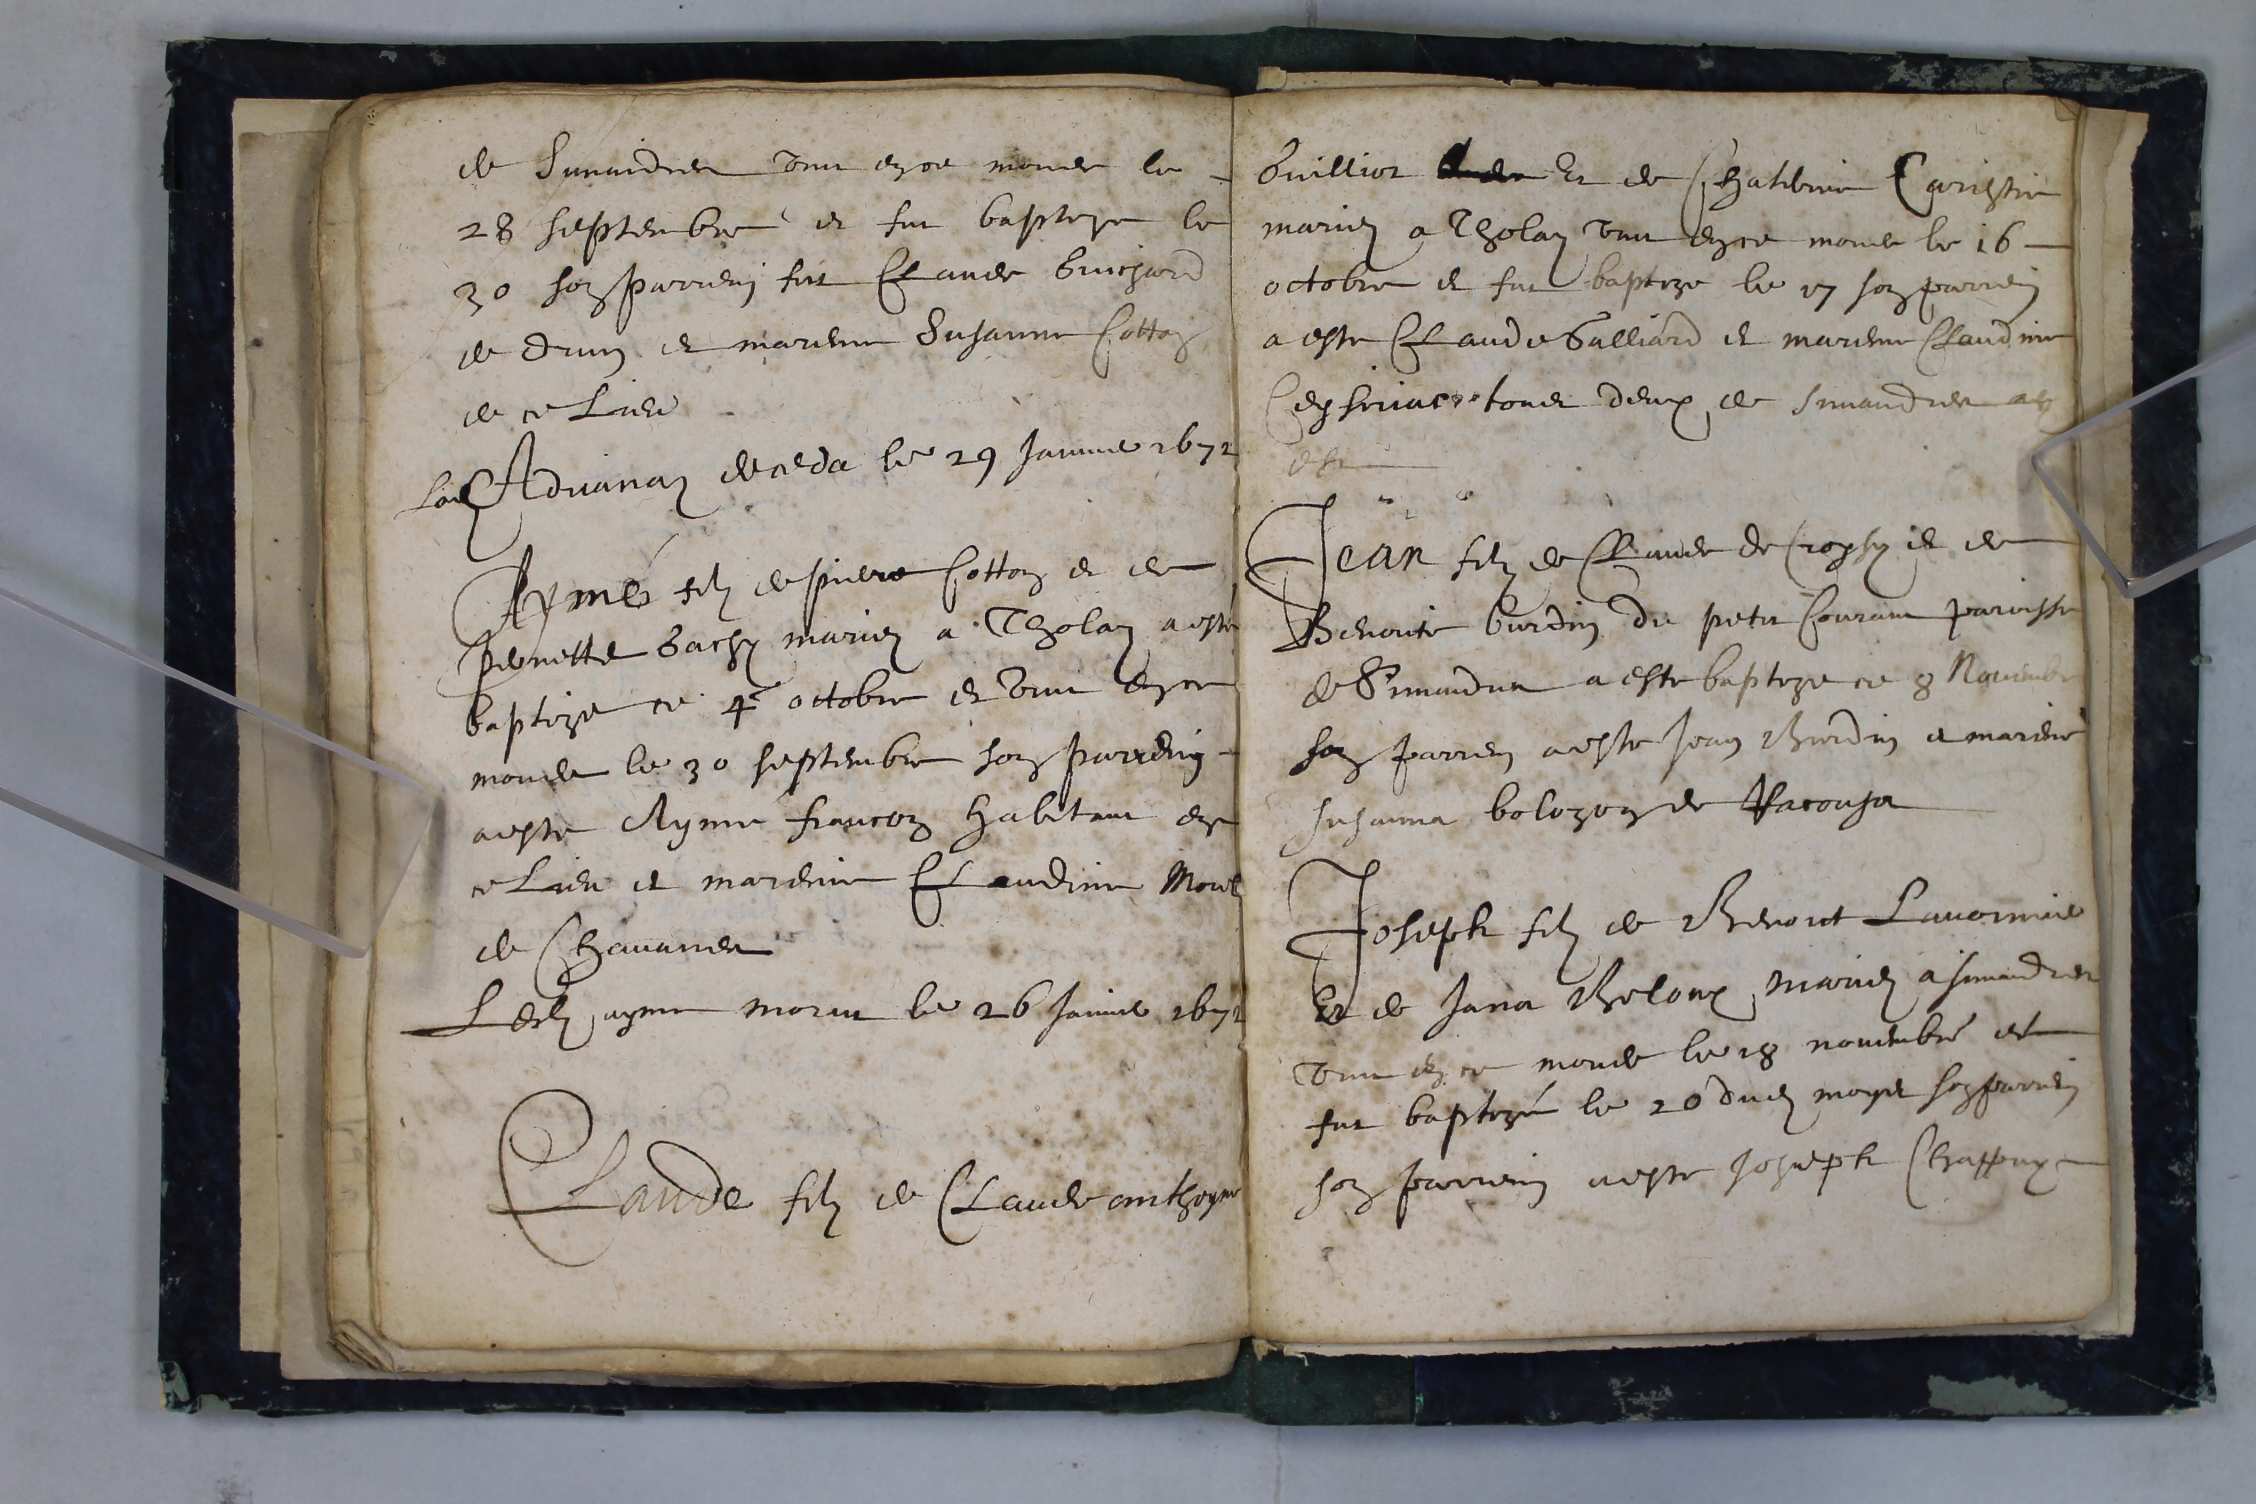 de Simandres vint en ce monde le
28 septembre et fut baptize le
30 son parrein fut Claude Guichard
de Drun et mareine Susanne Cotton
de ce Lieu
Adrianan deceda le 29 Janvie 1672
Aymé filz de piere Cotton et de
pernette Bachy mariez a Tholan a esté
baptize ce 4e octobre et vint en ce
monde le 30 septembre son parrein
a este Ayme francon habitant en
ce Lieu et mareine Claudine
de Chavannes
Ledit ayme morut le 26 Janvie 1672
Claude filz de Claude anthoyne
Guilliot Et de Chaterine
mariez a Tholan vint en ce monde le 16
octobre et fut baptize le 17 son parrein
a este Claude Galliard et mareine Claudine
toues deux de Simandres
Jean filz de Claude de et de
Benoite burdin du petit Courant paroisse
de Simandres a este baptize ce 8 Novembre
son parrein a este Jean Burdin et mareine
susanna bolozon de
Joseph filz de Benoit Lavornie
Et de Jana Beloux mariez a simandres
vint en ce monde le 18 novembre et
fut baptizé le 20 dudit moys son parrein
son parrein a este Joseph